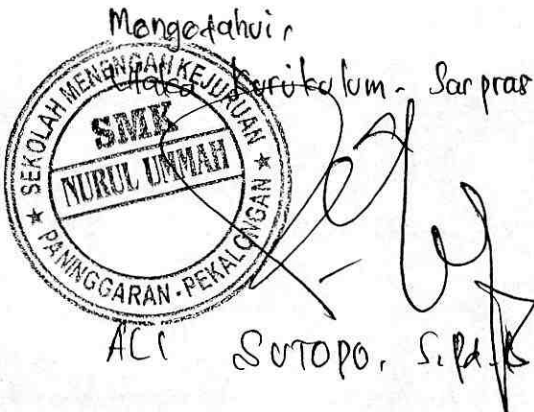 Mengetahui,
Waka Kurikulum - Sarpras
SEKOLAH MENENGAH KEJURUAN
SMK
NURUL UMMAH
★ PANINGGARAN - PEKALONGAN ★
SUTOPO, S.Pd.